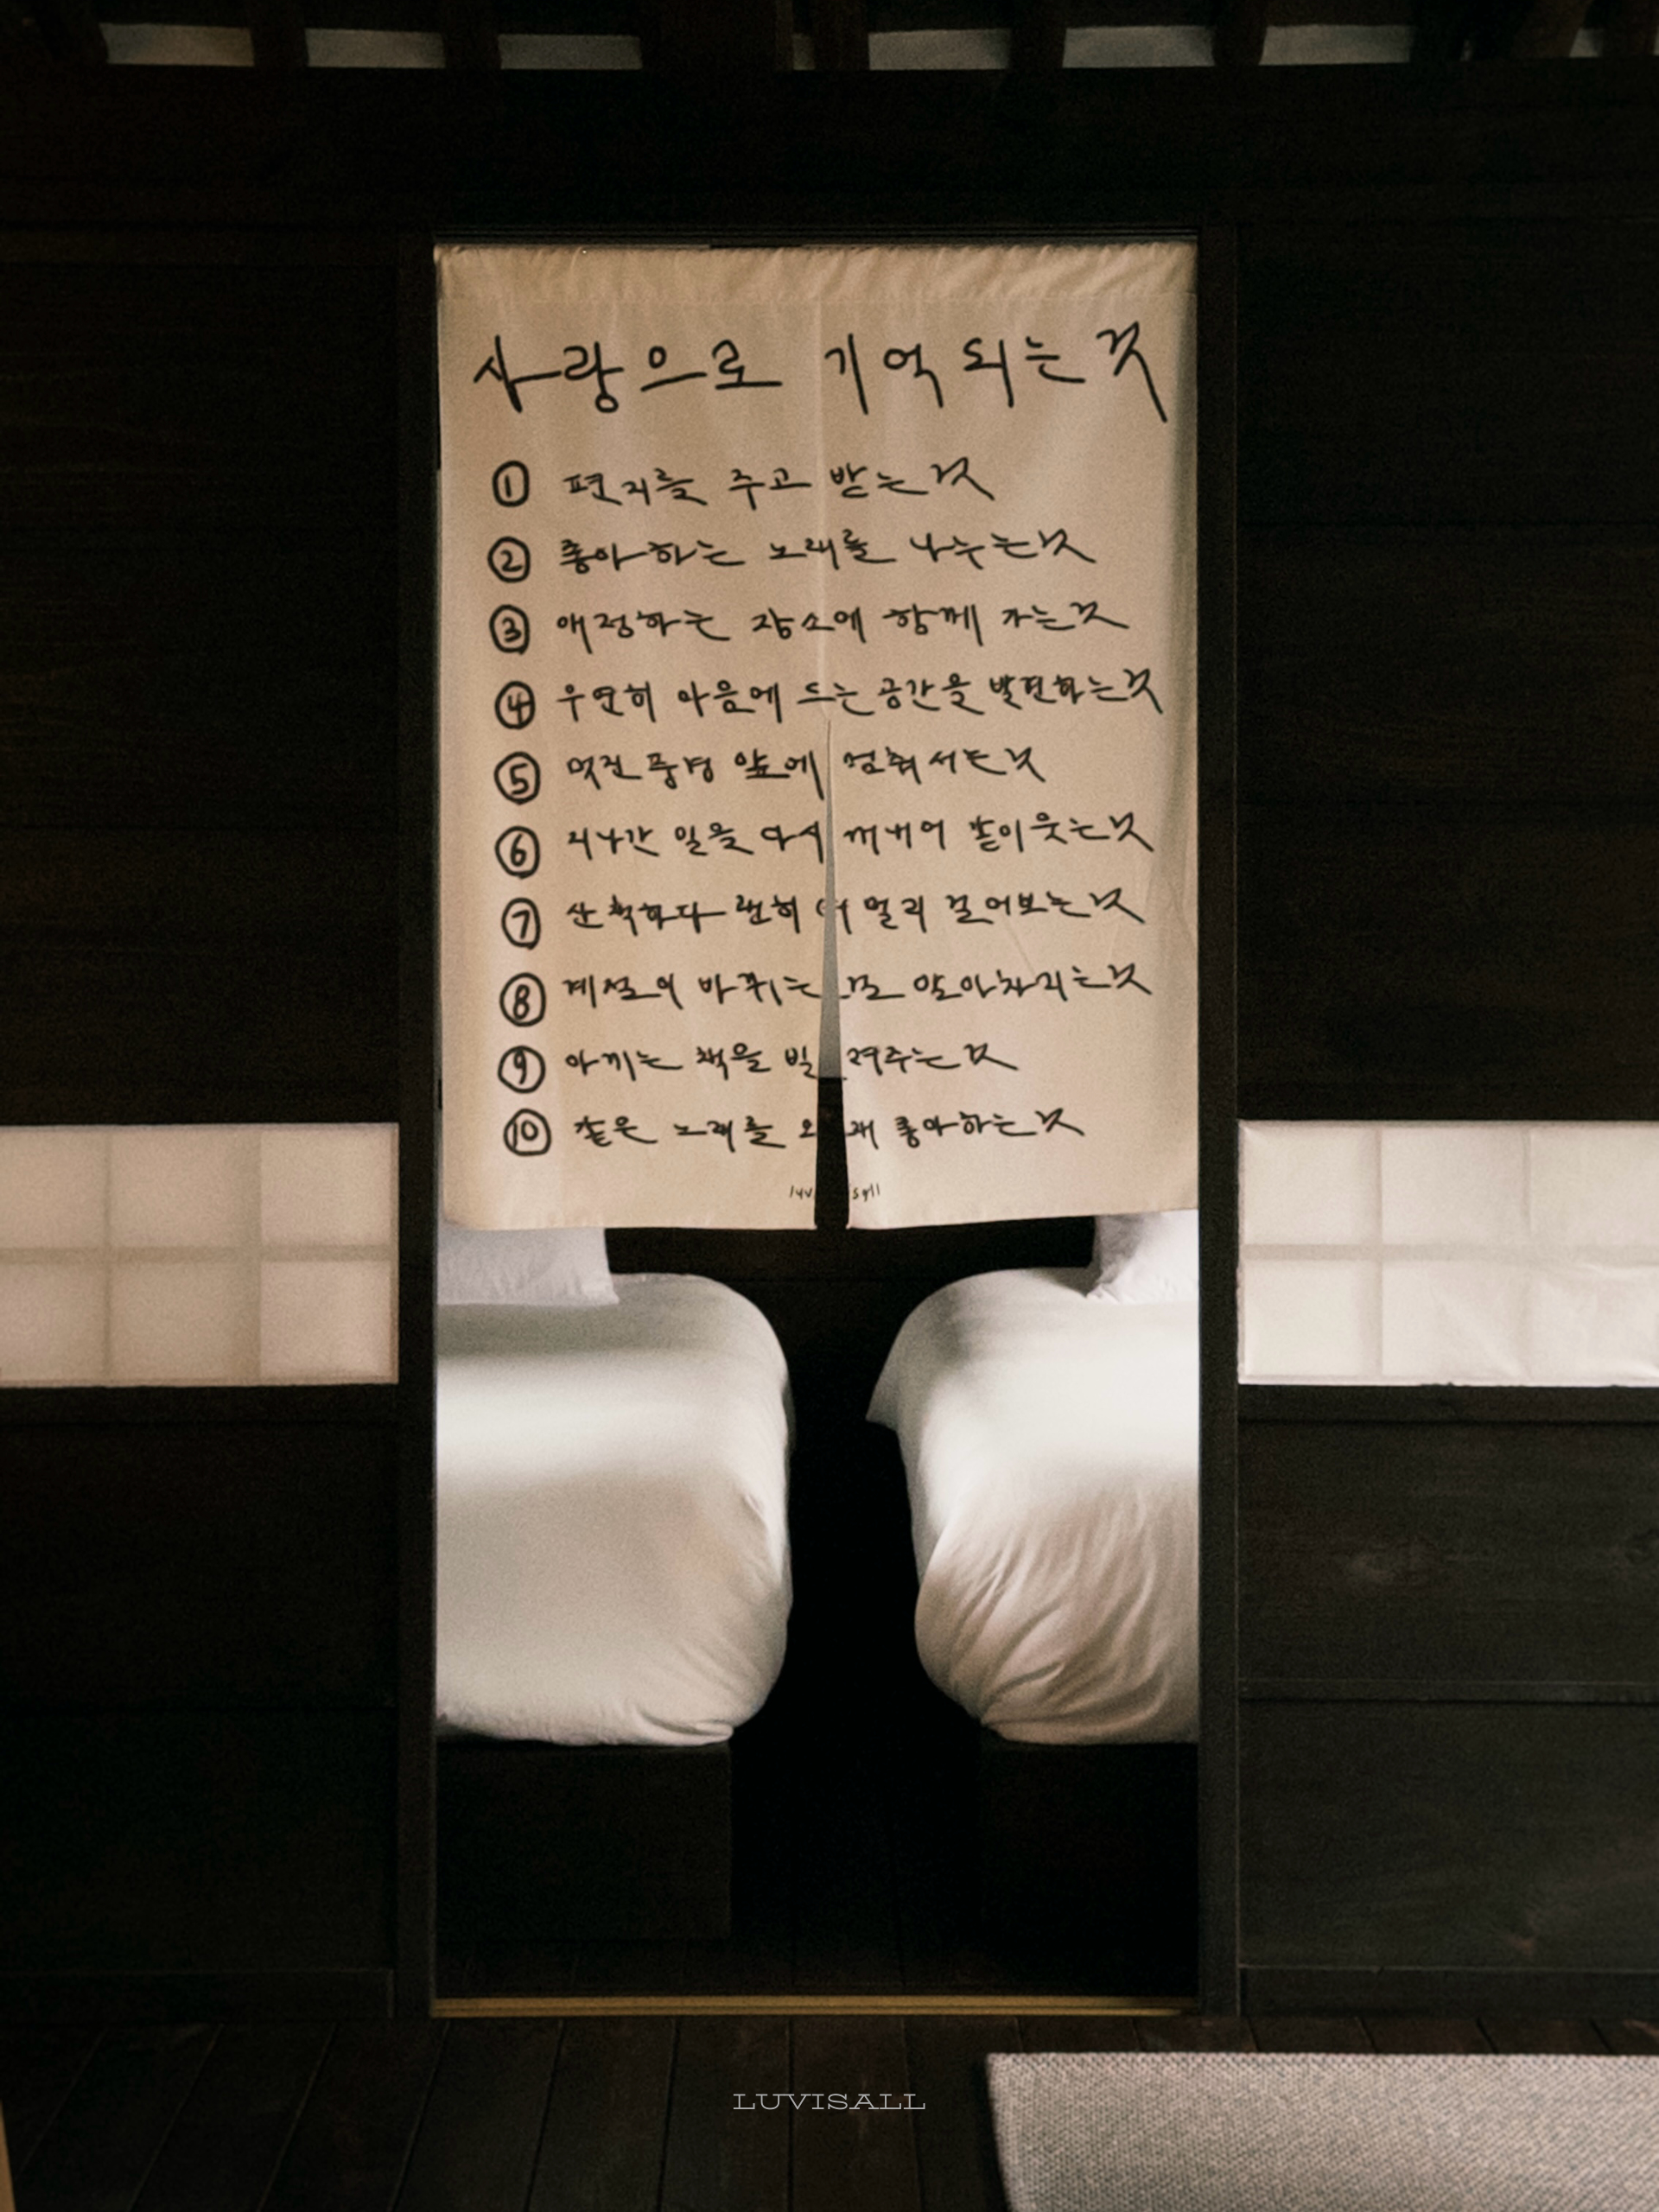 사랑으로 기억되는 것
① 편지를 주고 받는 것
② 좋아하는 노래를 나누는 것
③ 애정하는 장소에 함께 가는 것
④ 우연히 마음에 드는 공간을 발견하는 것
⑤ 멋진 풍경 앞에 멈춰 서는 것
⑥ 지나간 일을 다시 꺼내어 같이 웃는 것
⑦ 산책하다 괜히 더 멀리 걸어보는 것
⑧ 계절이 바뀌는 걸 알아차리는 것
⑨ 아끼는 책을 빌려주는 것
⑩ 같은 노래를 오래 좋아하는 것
luvisall
LUVISALL